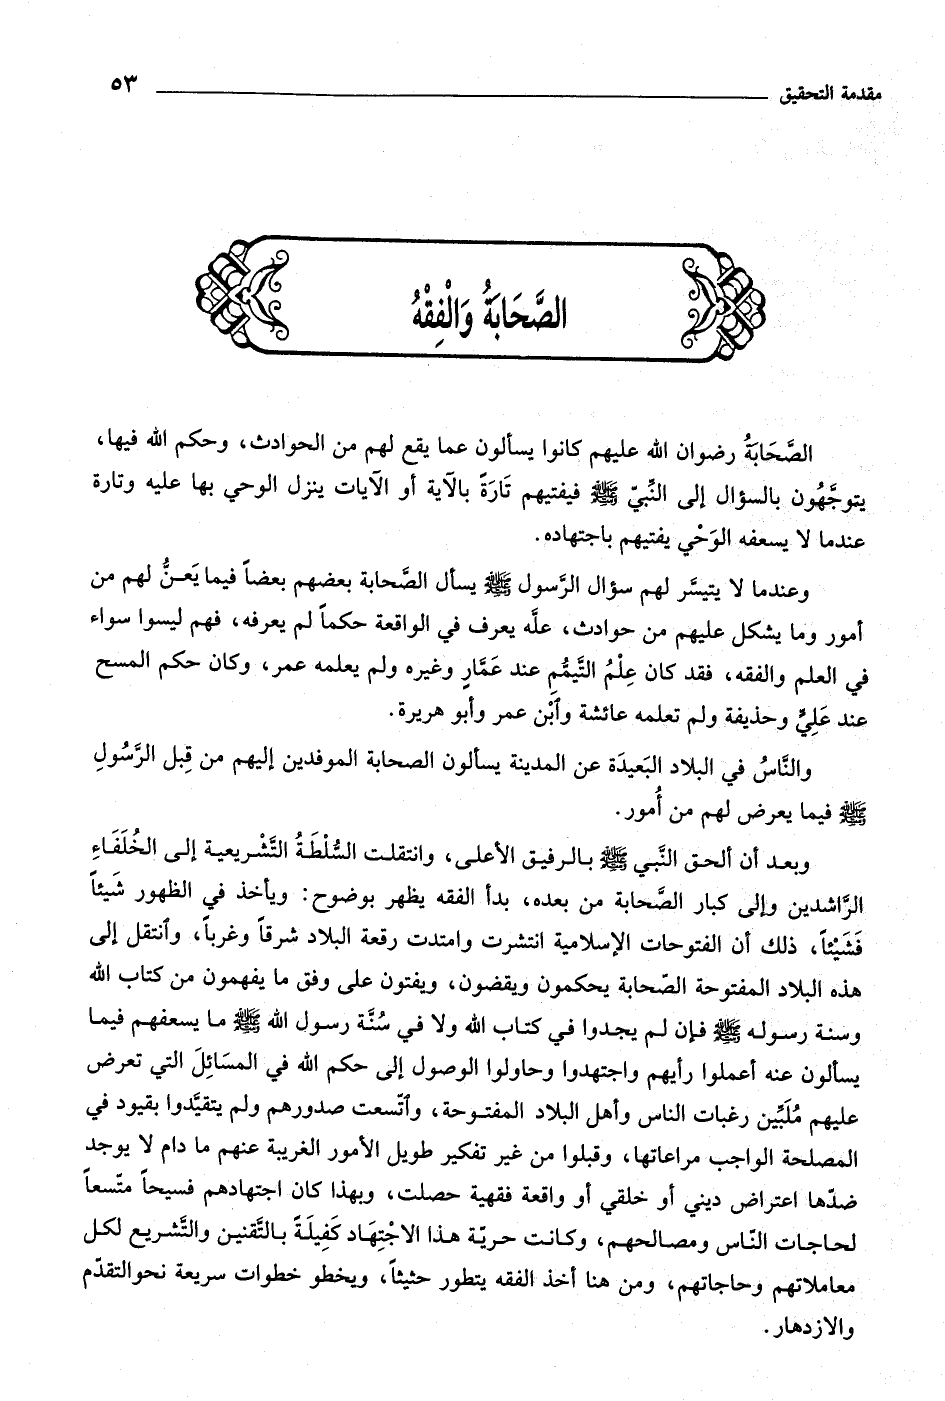 مقدمة التحقيق ٥٣
الصَّحَابَةُ وَالْفِقْهُ
الصَّحَابَةُ رضوان الله عليهم كانوا يسألون عما يقع لهم من الحوادث، وحكم الله فيها،
يتوجَّهُون بالسؤال إلى النَّبِيّ ﷺ فيفتيهم تَارَةً بالآية أو الآيات ينزل الوحي بها عليه وتارة
عندما لا يسعفه الوَحْي يفتيهم باجتهاده.
وعندما لا يتيسَّر لهم سؤال الرَّسول ﷺ يسأل الصَّحابة بعضهم بعضاً فيما يَعنُّ لهم من
أمور وما يشكل عليهم من حوادث، علَّه يعرف في الواقعة حكماً لم يعرفه، فهم ليسوا سواء
في العلم والفقه، فقد كان عِلْمُ التَّيمُّمِ عند عَمَّارٍ وغيره ولم يعلمه عمر، وكان حكم المسح
عند عَلِيٍّ وحذيفة ولم تعلمه عائشة وٱبْن عمر وأبو هريرة.
والنَّاسُ في البلاد البَعيدَة عن المدينة يسألون الصحابة الموفدين إليهم من قِبل الرَّسُولِ
ﷺ فيما يعرض لهم من أُمور.
وبعد أن ألحق النَّبي ﷺ بالرفيق الأعلى، وانتقلت السُّلْطَةُ التَّشْريعية إلى الخُلَفَاءِ
الرَّاشدين وإلى كبار الصَّحابة من بعده، بدأ الفقه يظهر بوضوح: ويأخذ في الظهور شَيئاً
فَشَيْئاً، ذلك أن الفتوحات الإسلامية انتشرت وامتدت رقعة البلاد شرقاً وغرباً، وٱنتقل إلى
هذه البلاد المفتوحة الصّحابة يحكمون ويقضون، ويفتون على وفق ما يفهمون من كتاب الله
وسنة رسوله ﷺ فإن لم يجدوا في كتاب الله ولا في سُنَّة رسول الله ﷺ ما يسعفهم فيما
يسألون عنه أعملوا رأيهم واجتهدوا وحاولوا الوصول إلى حكم الله في المسَائِلَ التي تعرض
عليهم مُلَبِّين رغبات الناس وأهل البلاد المفتوحة، وٱتّسعت صدورهم ولم يتقيَّدوا بقيود في
المصلحة الواجب مراعاتها، وقبلوا من غير تفكير طويل الأمور الغريبة عنهم ما دام لا يوجد
ضدّها اعتراض ديني أو خلقي أو واقعة فقهية حصلت، وبهذا كان اجتهادهم فسيحاً متّسعاً
لحاجات النّاس ومصالحهم، وكانت حريّة هذا الاجْتِهَاد كَفِيلَةً بالتَّقنين والتَّشريع لكل
معاملاتهم وحاجاتهم، ومن هنا أخذ الفقه يتطور حثيثاً، ويخطو خطوات سريعة نحوالتقدّم
والازدهار.